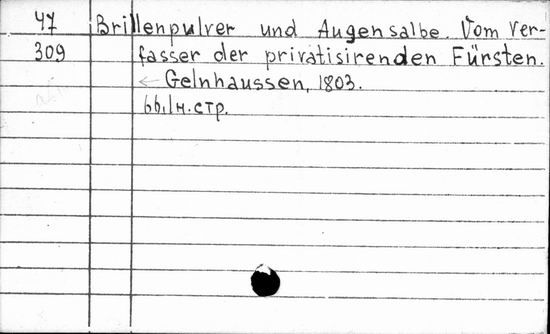 47 Brillenpulver und Augensalbe. Vom Ver-
309 fasser der privatisirenden Fürsten.
← Gelnhaussen, 1803.
66,1н.стр.